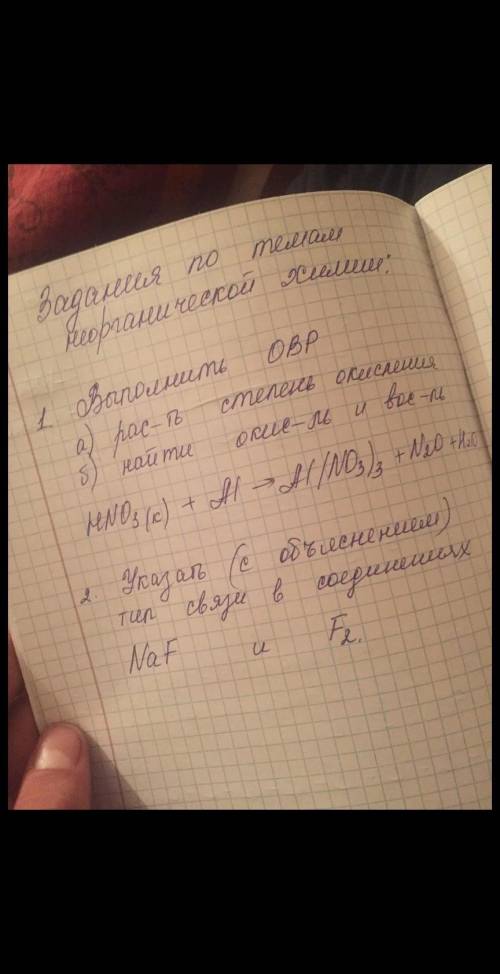 Задания по темам
неорганической химии:
1. Выполнить ОВР
а) рас-ть степень окисления
б) найти окис-ль и вос-ль
HNO₃(к) + Al → Al(NO₃)₃ + N₂O + H₂O
2. Указать (с объяснением)
тип связи в соединениях
NaF и F₂.